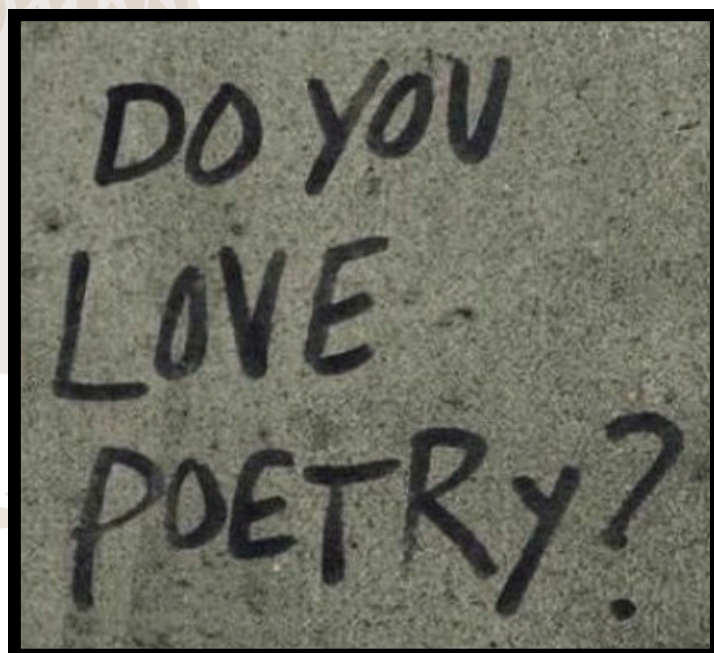 DO YOU
LOVE
POETRY?